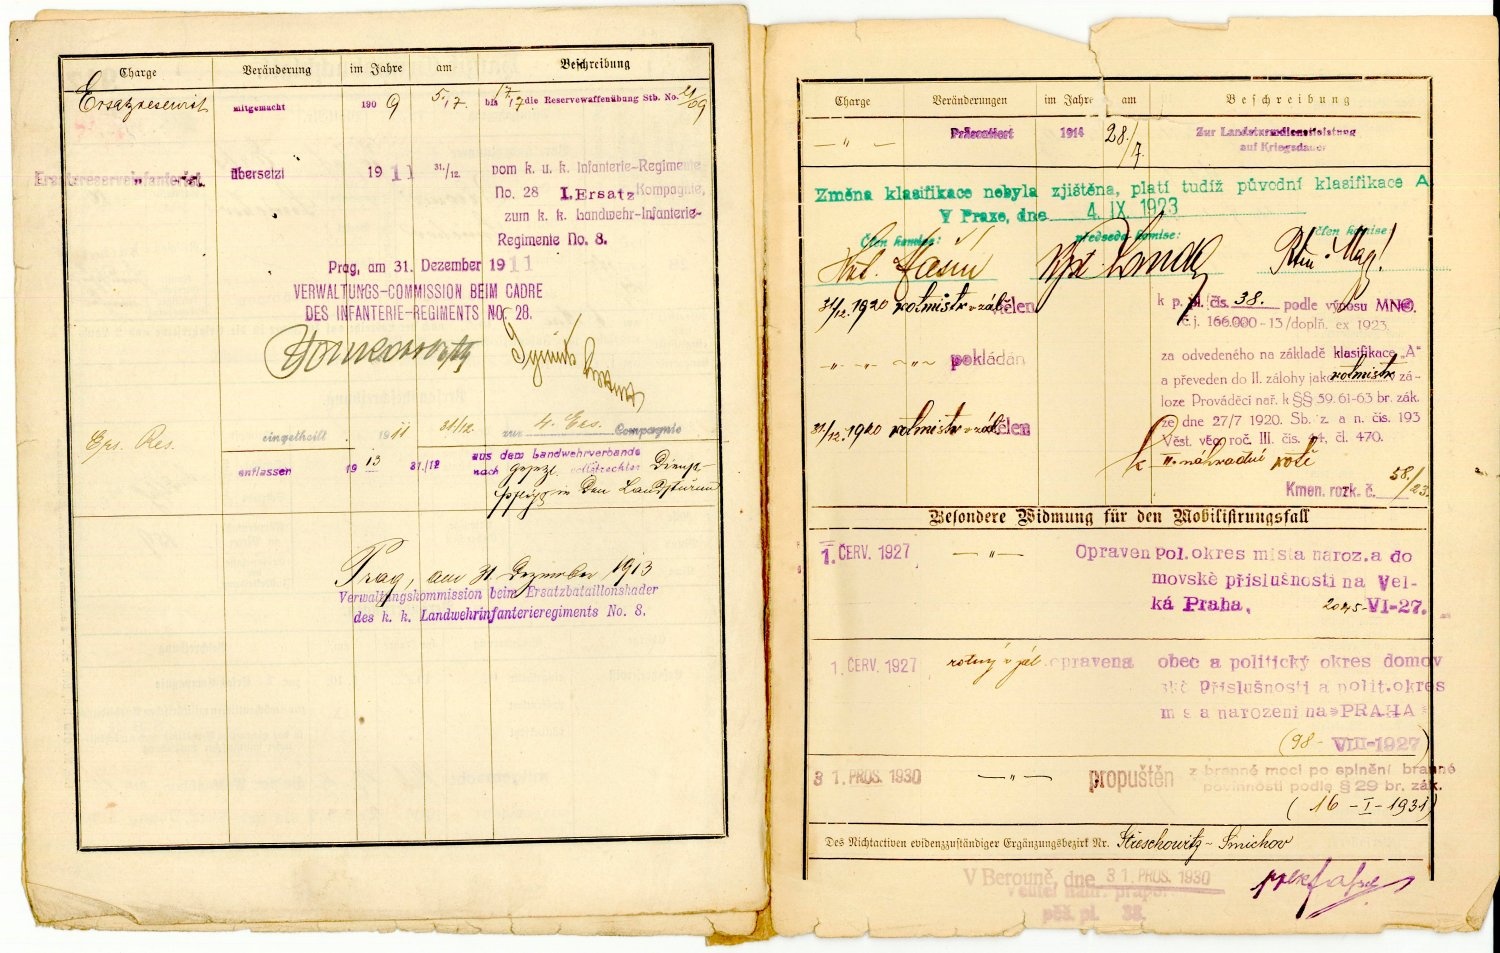 Charge Veränderung im Jahre am Beschreibung
Ersatzreservist mitgemacht 1909 5./7. bis 17/7 die Reservewaffenübung Stb. No. /09
Ersatzreserveinfanterist übersetzt 1911 31./12. vom k. u. k. Infanterie-Regimente
No. 28 I. Ersatz Kompagnie,
zum k. k. Landwehr-Infanterie-
Regimente No. 8.
Prag, am 31. Dezember 1911
VERWALTUNGS-COMMISSION BEIM CADRE
DES INFANTERIE-REGIMENTS No. 28.
Ers. Res. eingetheilt 1911 31/12. zur 4. Ers. Compagnie
entlassen 1913 31./12 aus dem Landwehrverbande
nach vollstreckter Dienst-
in den Landsturm
Prag, am 31 Dezember 1913
Verwaltungskommission beim Ersatzbataillonskader
des k. k. Landwehrinfanterieregiments No. 8.
Charge Veränderungen im Jahre am Beschreibung
— " — Präsentiert 1914 28./7. Zur Landsturmdienstleistung
auf Kriegsdauer
Změna klasifikace nebyla zjištěna, platí tudíž původní klasifikace A
V Praze, dne 4. IX. 1923
Člen komise: předseda komise: člen komise:
31/12. 1920 rotmistr v zál. dělen k p. pl. čís. 38. podle výnosu MNO.
č.j. 166.000-13/doplň. ex 1923.
pokládán za odvedeného na základě klasifikace „A"
a převeden do II. zálohy jako rotmistr v zá-
loze Prováděcí nař. k §§ 59. 61-63 br. zák.
ze dne 27/7 1920. Sb. z. a n. čís. 193
31/12. 1920 rotmistr v zál. dělen Věst. věc. roč. III. čís. 44, čl. 470.
k II. náhradní rotě
Kmen. rozk. č. 58./23.
Besondere Widmung für den Mobilisirungsfall
1. ČERV. 1927 — " — Opraven pol. okres místa naroz. a do
movské příslušnosti na Vel-
ká Praha, 2045-VI-27.
1. ČERV. 1927 rotný v zál. opravena obec a politický okres domov
ské příslušnosti a polit. okres
místa narození na »PRAHA«
(98-VIII-1927)
31. PROS. 1930 — " — propuštěn z branné moci po splnění branné
povinnosti podle § 29 br. zák.
(16-I-1931)
Des Nichtactiven evidenzzuständiger Ergänzungsbezirk Nr. Smichov
V Berouně, dne 31. PROS. 1930
velitel náhr. praporu
pěš. pl. 38.